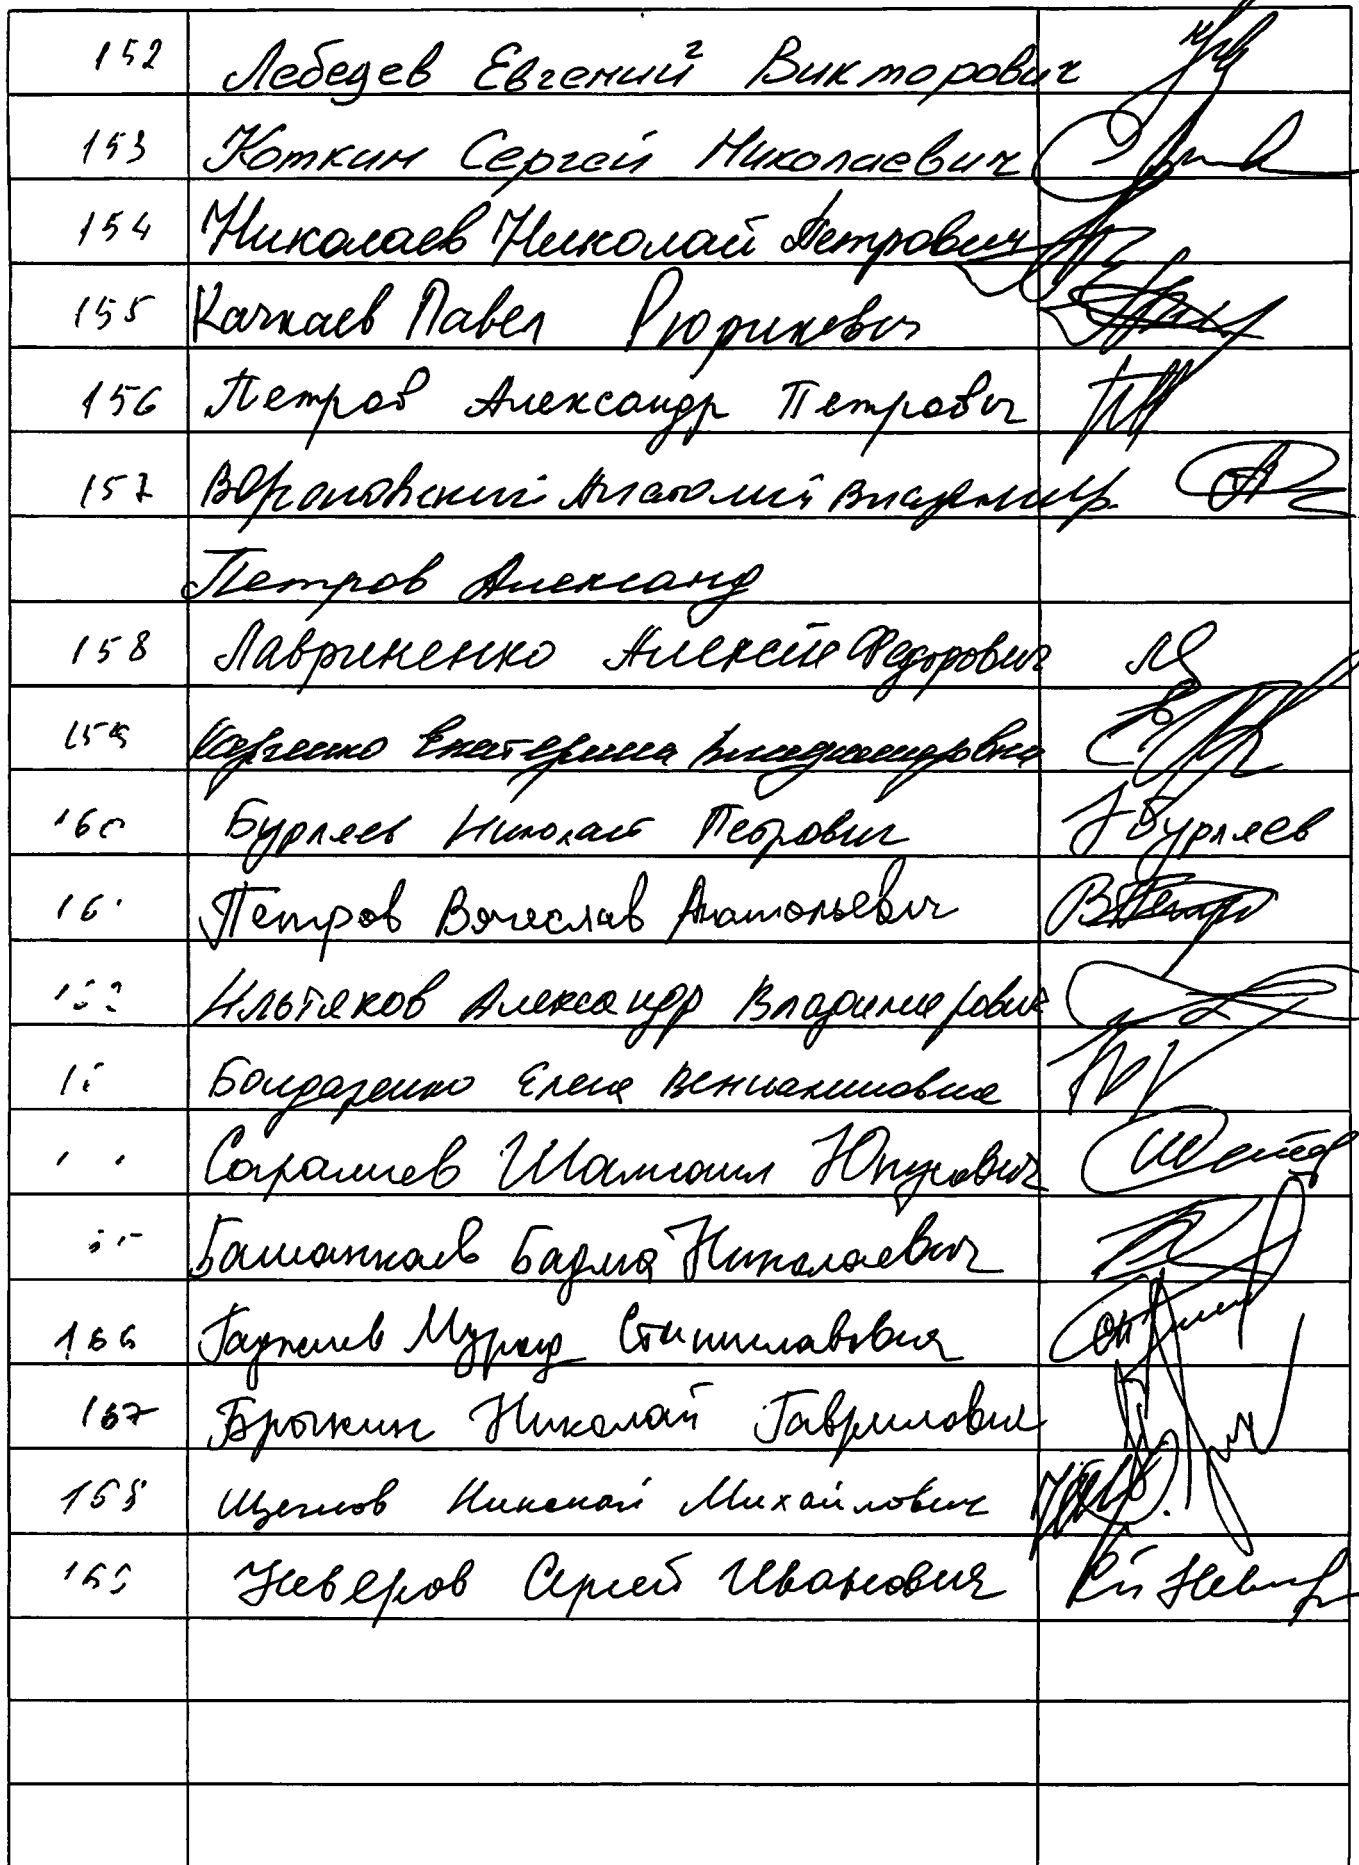 152 Лебедев Евгений Викторович
153 Коткин Сергей Николаевич
154 Николаев Николай Петрович
155 Качкаев Павел Рюрикович
156 Петров Александр Петрович
157 Вороновский Анатолий Владимир.
Петров Александ
158 Лавриненко Алексей Федорович
159 Харченко Екатерина Владимировна
160 Бурляев Николай Петрович Н Бурляев
16 Петров Вячеслав Анатольевич
Ильтяков Александр Владимирович
Бондаренко Елена Вениаминовна
Саралиев Шамсаил Юнусович
Башанкаев Бадма Николаевич
166 Гаджиев Мурад Станиславович
167 Брыкин Николай Гаврилович
168 Щеглов Николай Михайлович
169 Неверов Сергей Иванович